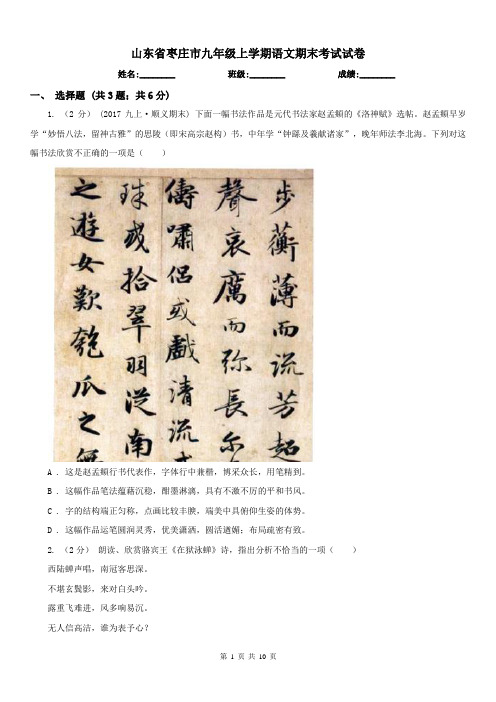 山东省枣庄市九年级上学期语文期末考试试卷
姓名:________ 班级:________ 成绩:________
一、 选择题 (共3题；共6分)
1. （2分） (2017九上·顺义期末) 下面一幅书法作品是元代书法家赵孟頫的《洛神赋》选帖。赵孟頫早岁
学“妙悟八法，留神古雅”的思陵（即宋高宗赵构）书，中年学“钟繇及羲献诸家”，晚年师法李北海。下列对这
幅书法欣赏不正确的一项是（ ）
步蘅薄而流芳超
聲哀厲而弥長尔
儔嘯侣或戲清流
珠或拾翠羽從南
之遊女歎匏瓜之無
A . 这是赵孟頫行书代表作，字体行中兼楷，博采众长，用笔精到。
B . 这幅作品笔法蕴藉沉稳，酣墨淋漓，具有不激不厉的平和书风。
C . 字的结构端正匀称，点画比较丰腴，端美中具俯仰生姿的体势。
D . 这幅作品运笔圆润灵秀，优美潇洒，圆活遒媚；布局疏密有致。
2. （2分） 朗读、欣赏骆宾王《在狱泳蝉》诗，指出分析不恰当的一项（ ）
西陆蝉声唱，南冠客思深。
不堪玄鬓影，来对白头吟。
露重飞难进，风多响易沉。
无人信高洁，谁为表予心？
第 1 页 共 10 页